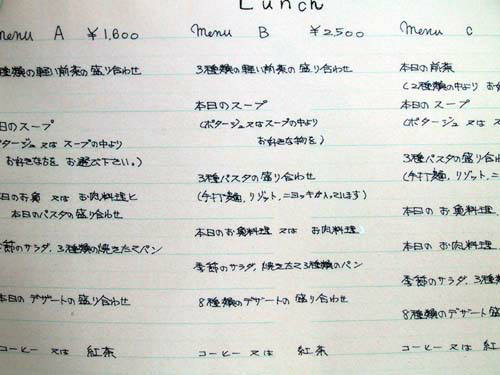 Lunch
menu A ¥1,800
種類の軽い前菜の盛り合わせ
日のスープ
タージュ 又は スープの中より
お好きな方を お選び下さい。)
日のお魚 又は お肉料理と
本日のパスタの盛り合わせ
節のサラダ、3種類の焼きたてパン
本日の デザートの 盛り合わせ
コーヒー 又は 紅茶
Menu B ¥2,500
3種類の軽い前菜の盛り合わせ
本日のスープ
(ポタージュ 又は スープの中より
お好きな物を)
3種パスタの盛り合わせ
(手打麺、リゾット、ニョッキが入ってます)
本日のお魚料理 又は お肉料理
季節のサラダ、焼きたて3種類のパン
8種類のデザートの 盛り合わせ
コーヒー 又は 紅茶
Menu C
本日の前菜
(2種類の中より お
本日の スープ
(ポタージュ 又は ス
3種パスタの盛り合
(手打麺、リゾット、
本日の お魚料
本日の お肉料
季節のサラダ、3種
8種類のデザート 盛
コーヒー 又は 紅